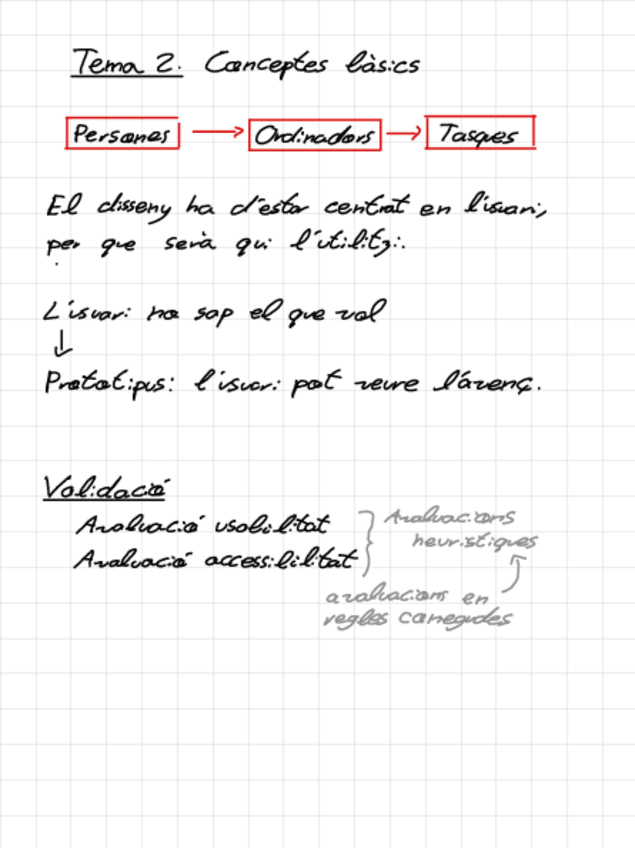 Tema 2. Conceptes bàsics
Persones → Ordinadors → Tasques
El disseny ha d'estar centrat en l'usuari,
per que serà qui l'utilitzi.
L'usuari no sap el que vol
↓
Prototipus: l'usuari pot veure l'avenç.
Validació
Avaluació usabilitat
Avaluació accessibilitat
Avaluacions
heurístiques
avaluacions en
regles conegudes